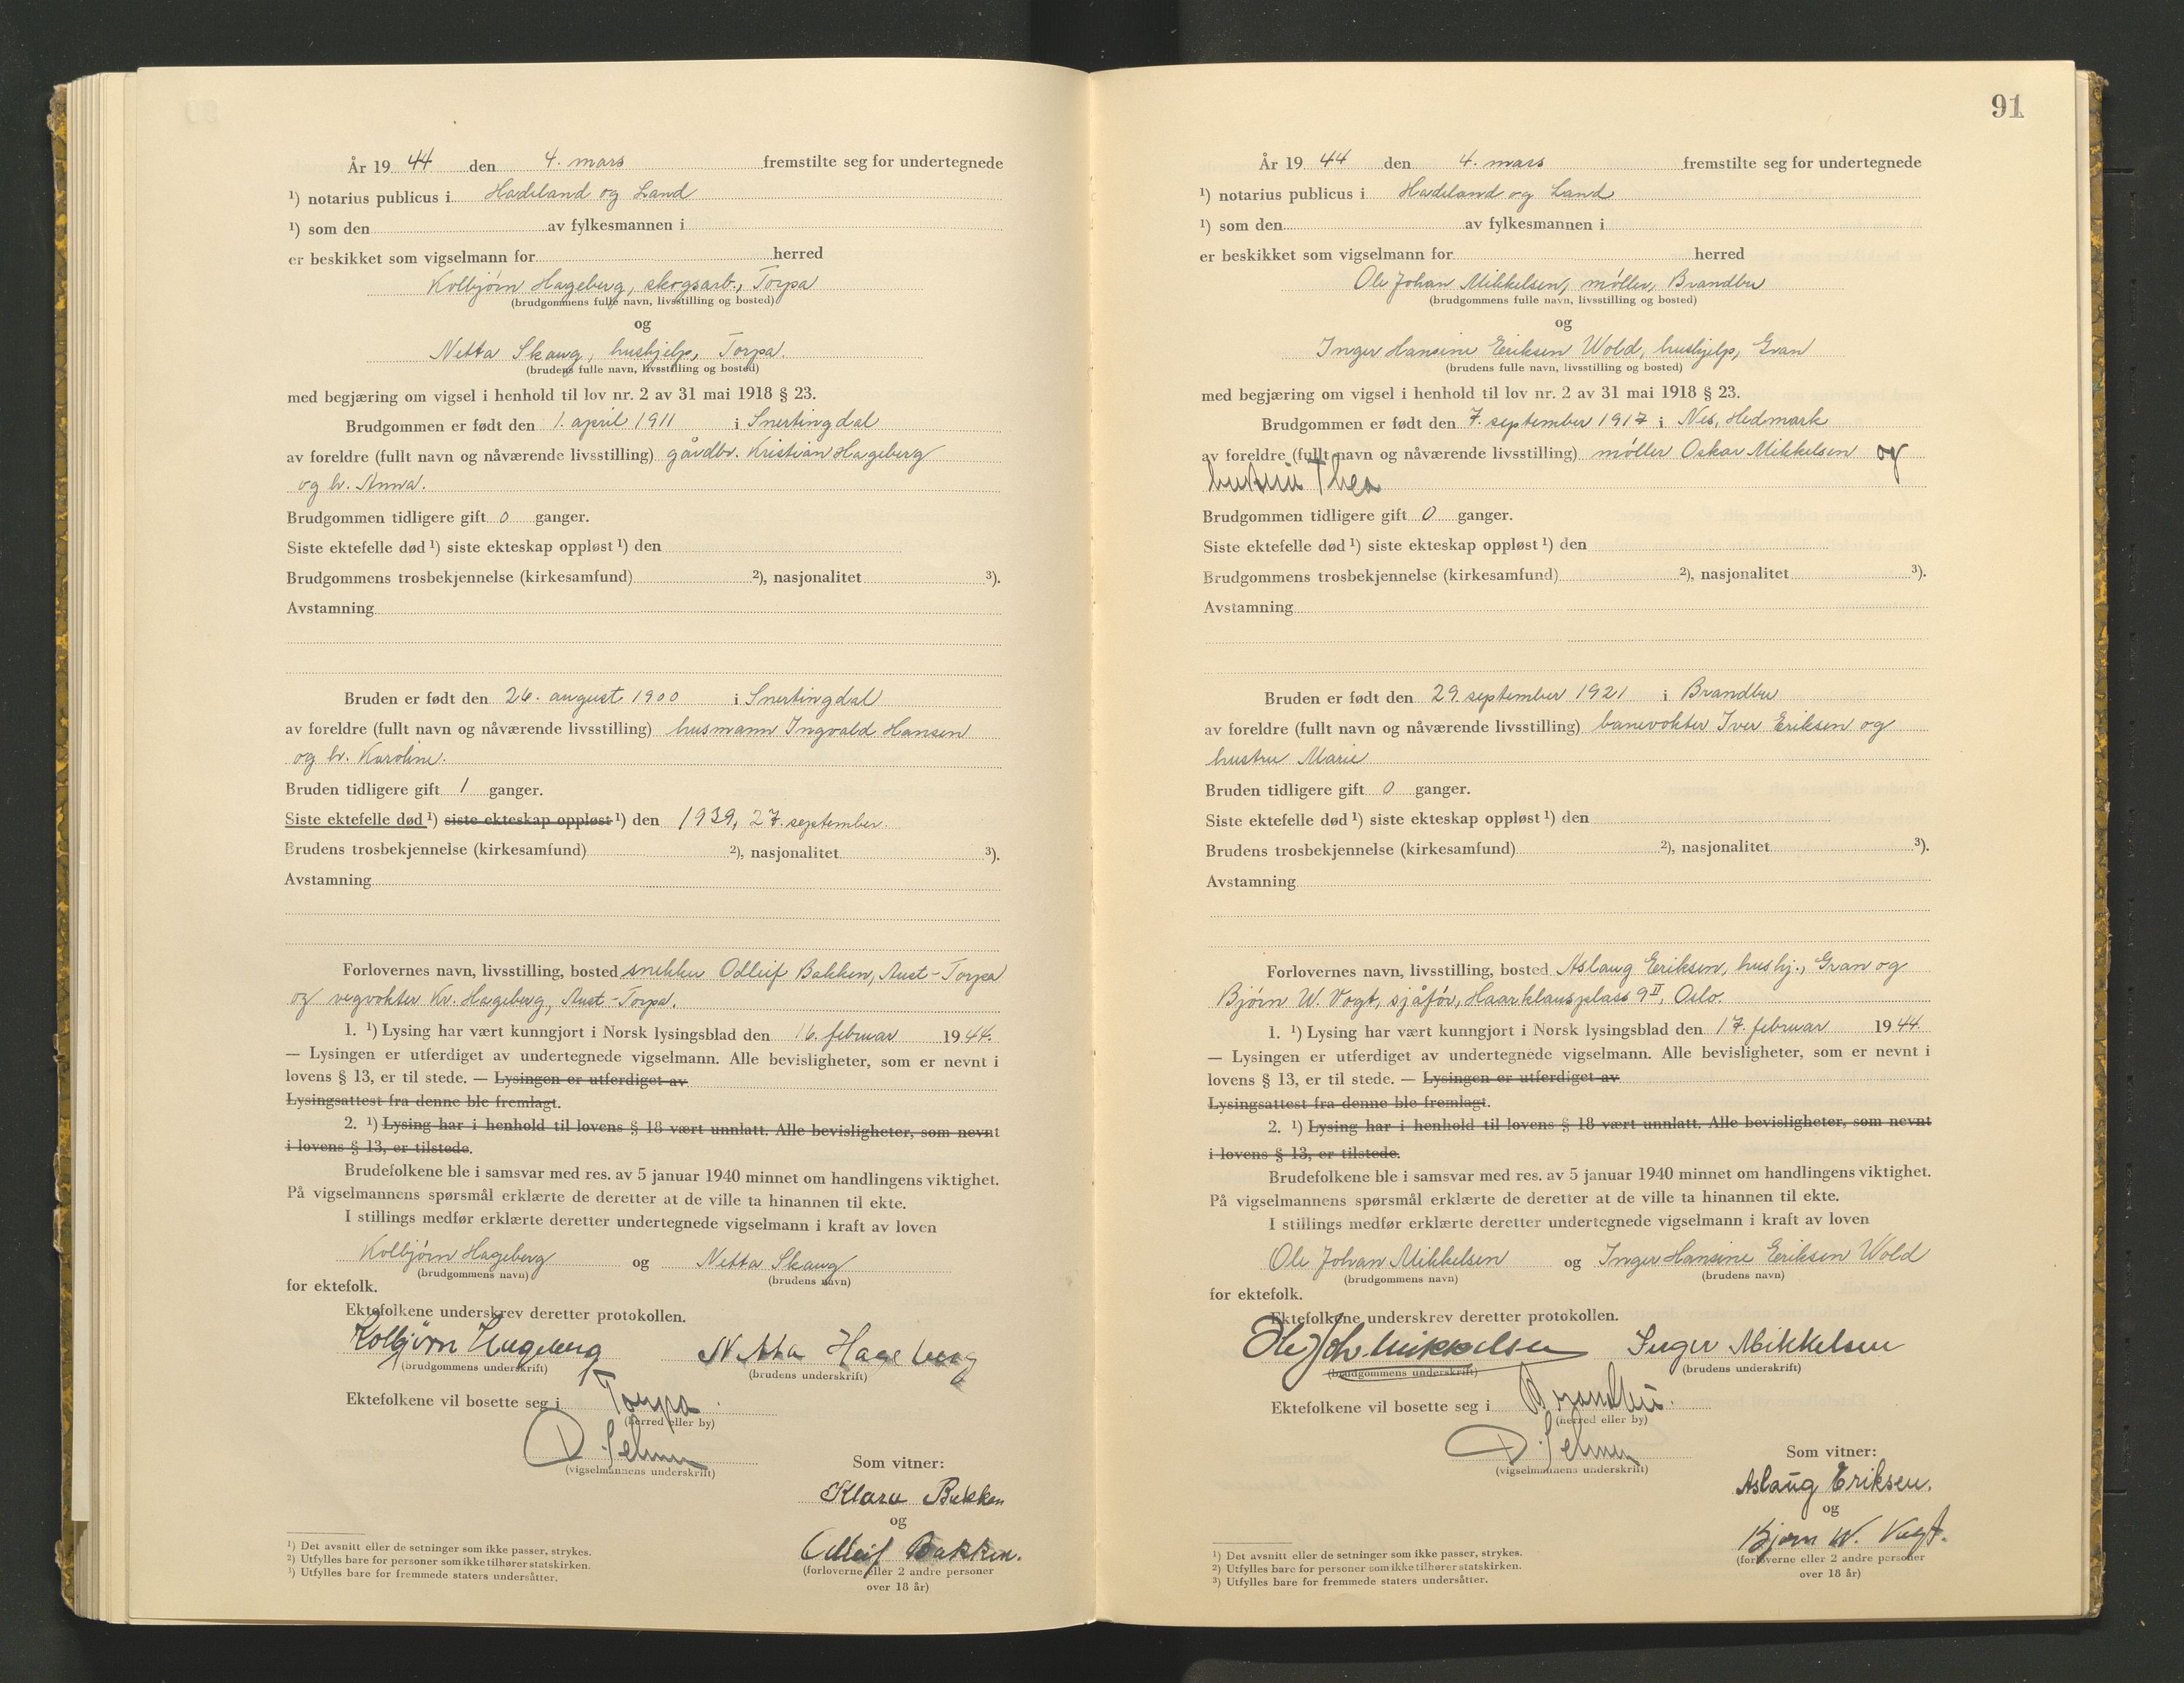 År 19 44 den 4. mars fremstilte seg for undertegnede
¹) notarius publicus i Hadeland og Land
¹) som den av fylkesmannen i
er beskikket som vigselmann for herred
Kolbjörn Hageberg, skogsarb., Torpa
(brudgommens fulle navn, livsstilling og bosted)
og
Netta Skaug, hushjelp, Torpa.
(brudens fulle navn, livsstilling og bosted)
med begjæring om vigsel i henhold til lov nr. 2 av 31 mai 1918 § 23.
Brudgommen er født den 1. april 1911 i Snertingdal
av foreldre (fullt navn og nåværende livsstilling) gårdbr. Kristian Hageberg
og h. Anna.
Brudgommen tidligere gift 0 ganger.
Siste ektefelle død ¹) siste ekteskap oppløst ¹) den
Brudgommens trosbekjennelse (kirkesamfund) ²), nasjonalitet ³).
Avstamning
Bruden er født den 26. august 1900 i Snertingdal
av foreldre (fullt navn og nåværende livsstilling) husmann Ingvald Hansen
og h. Karoline.
Bruden tidligere gift 1 ganger.
Siste ektefelle død ¹) siste ekteskap oppløst ¹) den 1939, 27. september.
Brudens trosbekjennelse (kirkesamfund) ²), nasjonalitet ³).
Avstamning
Forlovernes navn, livsstilling, bosted snekker Odleif Bakken, Aust-Torpa
og vegvokter Kr. Hageberg, Aust-Torpa.
1. ¹) Lysing har vært kunngjort i Norsk lysingsblad den 16. februar 1944.
— Lysingen er utferdiget av undertegnede vigselmann. Alle bevisligheter, som er nevnt i
lovens § 13, er til stede. — Lysingen er utferdiget av
Lysingsattest fra denne ble fremlagt.
2. ¹) Lysing har i henhold til lovens § 18 vært unnlatt. Alle bevisligheter, som nevnt
i lovens § 13, er tilstede.
Brudefolkene ble i samsvar med res. av 5 januar 1940 minnet om handlingens viktighet.
På vigselmannens spørsmål erklærte de deretter at de ville ta hinannen til ekte.
I stillings medfør erklærte deretter undertegnede vigselmann i kraft av loven
Kolbjörn Hageberg og Netta Skaug
(brudgommens navn) (brudens navn)
for ektefolk.
Ektefolkene underskrev deretter protokollen.
Kolbjörn Hageberg Netta Hageberg
(brudgommens underskrift) (brudens underskrift)
Ektefolkene vil bosette seg i Torpa.
(herred eller by)
(vigselmannens underskrift)
Som vitner:
Klara Bakken
og
Odleif Bakken.
(forloverne eller 2 andre personer
over 18 år)
¹) Det avsnitt eller de setninger som ikke passer, strykes.
²) Utfylles bare for personer som ikke tilhører statskirken.
³) Utfylles bare for fremmede staters undersåtter.
91
År 19 44 den 4. mars fremstilte seg for undertegnede
¹) notarius publicus i Hadeland og Land
¹) som den av fylkesmannen i
er beskikket som vigselmann for herred
Ole Johan Mikkelsen, möller, Brandbu
(brudgommens fulle navn, livsstilling og bosted)
og
Inger Hansine Eriksen Wold, hushjelp, Gran
(brudens fulle navn, livsstilling og bosted)
med begjæring om vigsel i henhold til lov nr. 2 av 31 mai 1918 § 23.
Brudgommen er født den 7. september 1917 i Nes, Hedmark
av foreldre (fullt navn og nåværende livsstilling) möller Oskar Mikkelsen og
hustru Thea
Brudgommen tidligere gift 0 ganger.
Siste ektefelle død ¹) siste ekteskap oppløst ¹) den
Brudgommens trosbekjennelse (kirkesamfund) ²), nasjonalitet ³).
Avstamning
Bruden er født den 29. september 1921 i Brandbu
av foreldre (fullt navn og nåværende livsstilling) banevokter Iver Eriksen og
hustru Marie
Bruden tidligere gift 0 ganger.
Siste ektefelle død ¹) siste ekteskap oppløst ¹) den
Brudens trosbekjennelse (kirkesamfund) ²), nasjonalitet ³).
Avstamning
Forlovernes navn, livsstilling, bosted Aslaug Eriksen, hushj., Gran og
Bjørn W. Vogt, sjåför, Haarklausplass 9 II, Oslo.
1. ¹) Lysing har vært kunngjort i Norsk lysingsblad den 17. februar 1944.
— Lysingen er utferdiget av undertegnede vigselmann. Alle bevisligheter, som er nevnt i
lovens § 13, er til stede. — Lysingen er utferdiget av
Lysingsattest fra denne ble fremlagt.
2. ¹) Lysing har i henhold til lovens § 18 vært unnlatt. Alle bevisligheter, som nevnt
i lovens § 13, er tilstede.
Brudefolkene ble i samsvar med res. av 5 januar 1940 minnet om handlingens viktighet.
På vigselmannens spørsmål erklærte de deretter at de ville ta hinannen til ekte.
I stillings medfør erklærte deretter undertegnede vigselmann i kraft av loven
Ole Johan Mikkelsen og Inger Hansine Eriksen Wold
(brudgommens navn) (brudens navn)
for ektefolk.
Ektefolkene underskrev deretter protokollen.
Ole Joh. Mikkelsen Inger Mikkelsen
(brudgommens underskrift) (brudens underskrift)
Ektefolkene vil bosette seg i Brandbu.
(herred eller by)
(vigselmannens underskrift)
Som vitner:
Aslaug Eriksen.
og
Bjørn W. Vogt.
(forloverne eller 2 andre personer
over 18 år)
¹) Det avsnitt eller de setninger som ikke passer, strykes.
²) Utfylles bare for personer som ikke tilhører statskirken.
³) Utfylles bare for fremmede staters undersåtter.